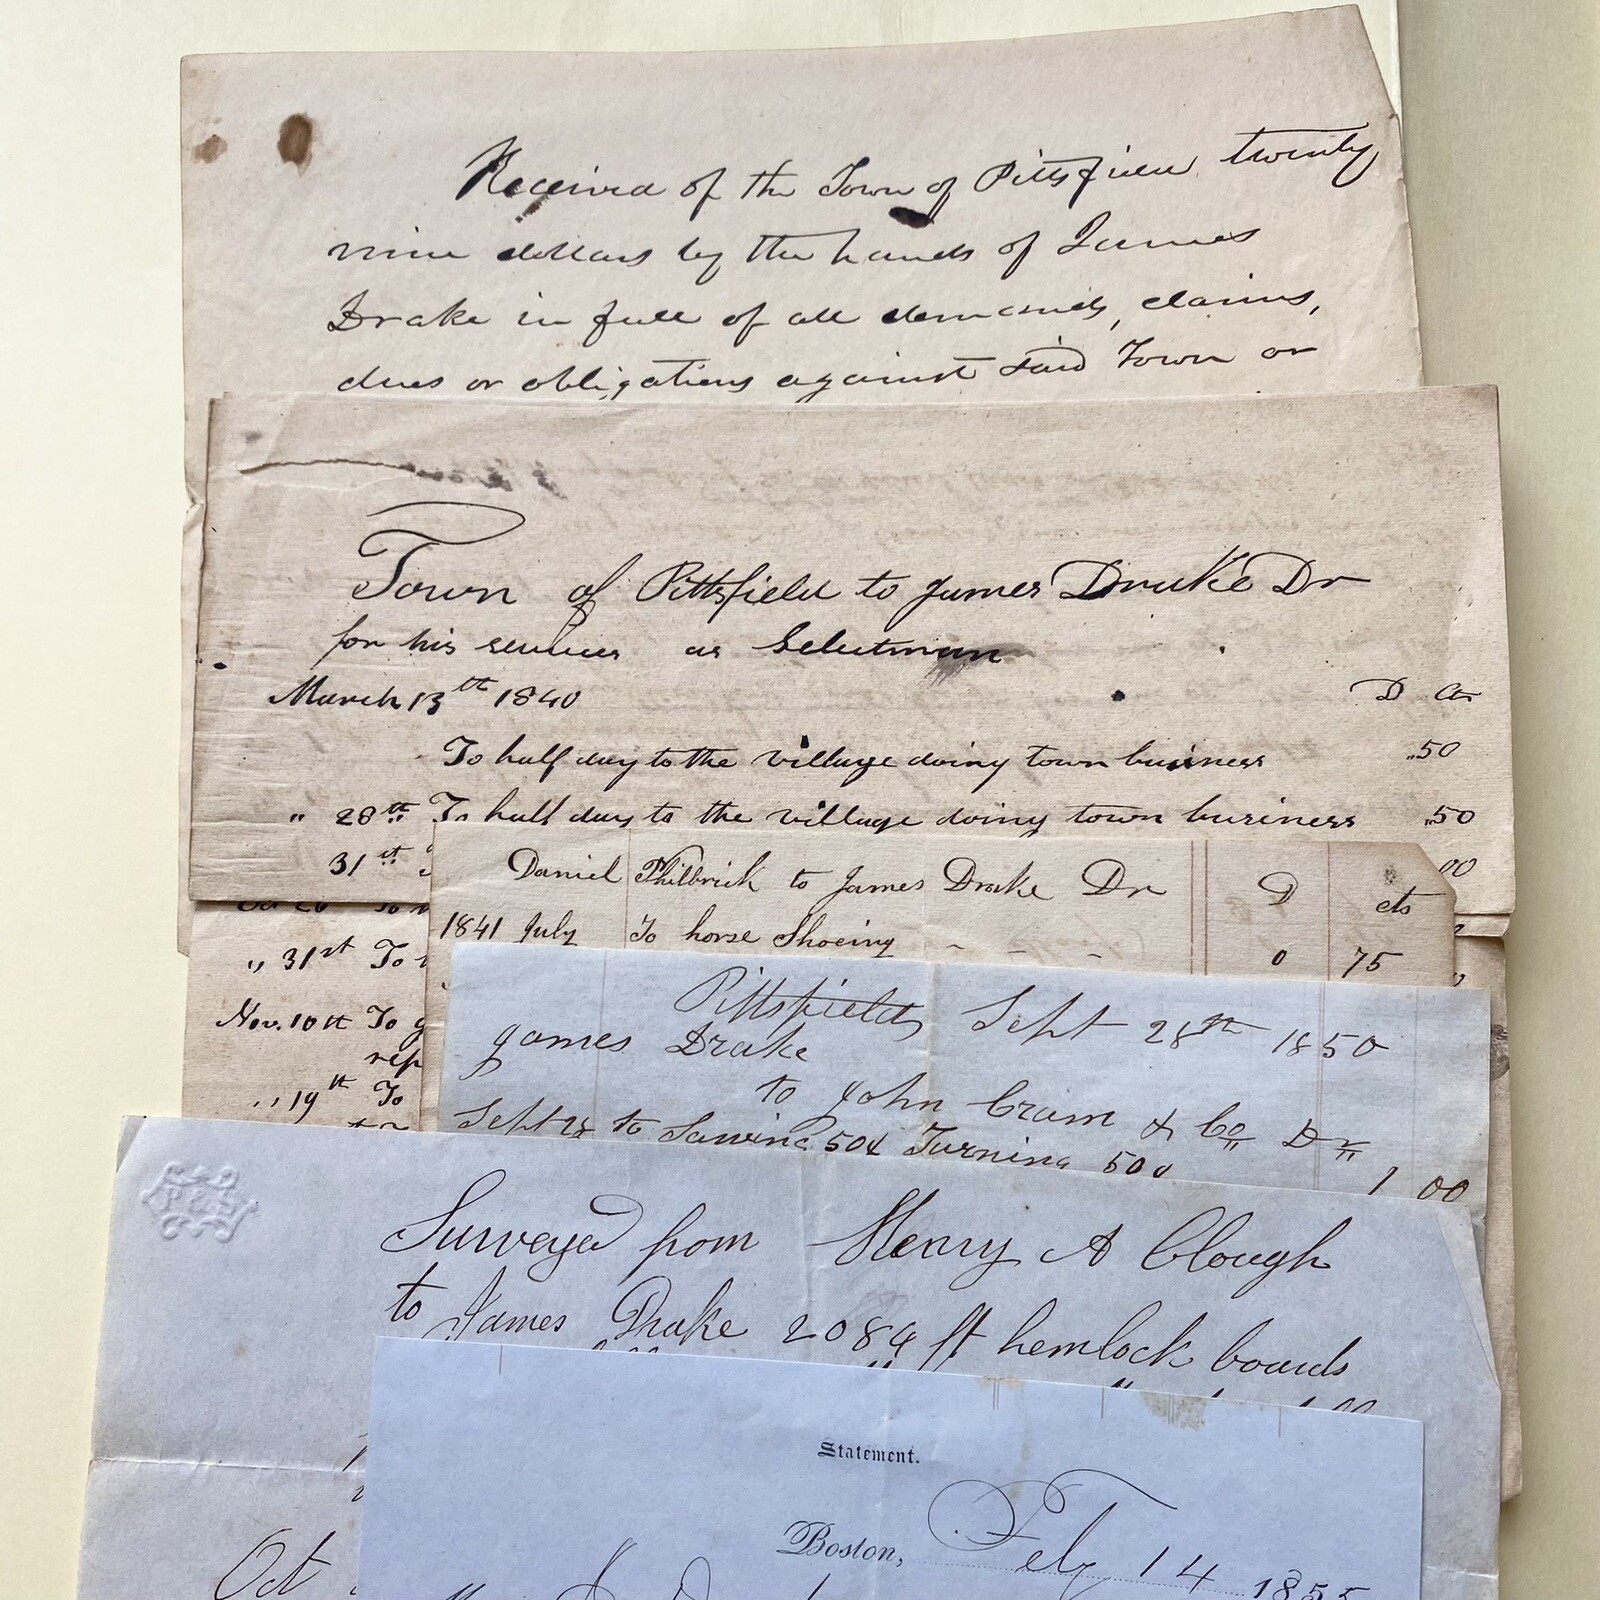 Received of the Town of Pittsfield twenty
nine dollars by the hands of James
Drake in full of all demands, claims,
dues or obligations against said Town or
Town of Pittsfield to James Drake Dr
for his services as Selectman
March 13th 1840 D Cts
To half day to the village doing town business ,,50
" 28th To half day to the village doing town business ,,50
31st 00
Daniel Philbrick to James Drake Dr D cts
1841 July To horse Shoeing - - - 0 75
,, 31st To
Nov. 10th To
rep
,, 19th To
Pittsfield Sept 28th 1850
James Drake
to John Cram & Co Dr
Sept 28 to Sawing 504 Turning 500
1 00
Surveyed from Henry A Clough
to James Drake 2084 ft hemlock boards
Statement.
Boston, Feb 14 1855
Oct